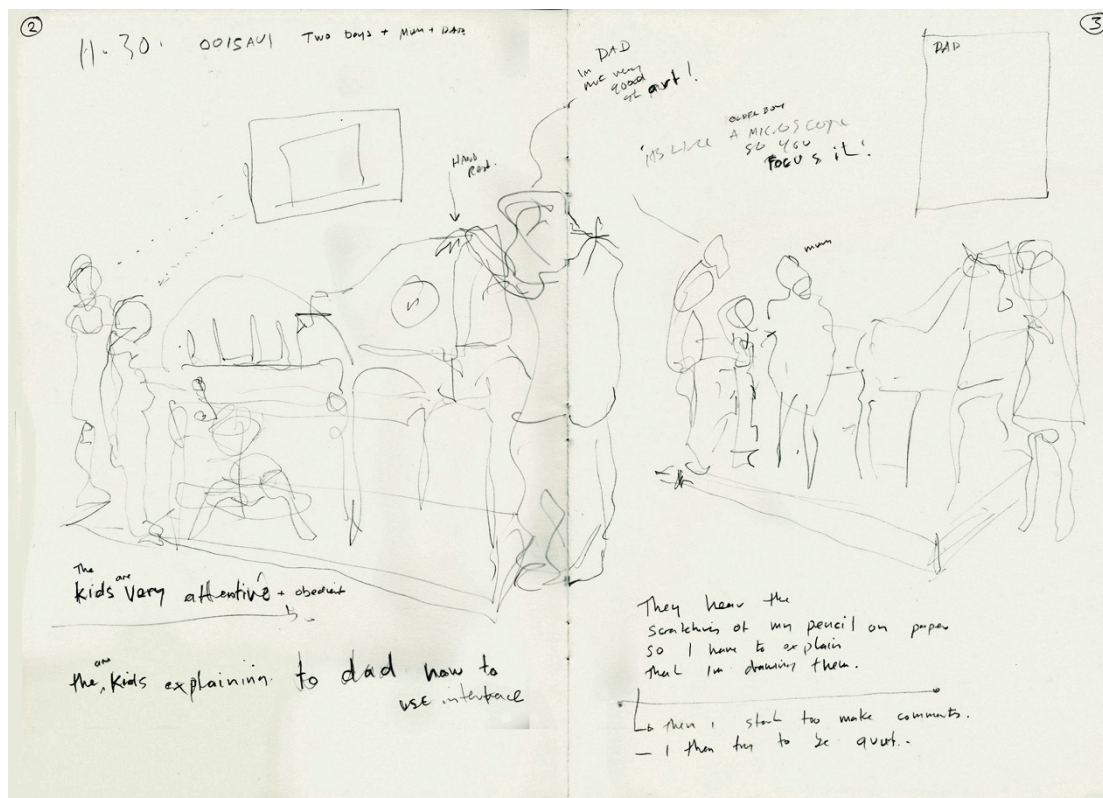 2
11.30. 0015AU1 Two boys + Mum + DAD
HAND
Rest.
The
kids are very attentive + obedient
the are kids explaining. to dad how to
use interface
3
Im DAD
not very
good
at art!
OLDER BOY
its like A MICROSCOPE
so you
FOCUS it!
DAD
mum
They hear the
scratching of my pencil on paper
so I have to explain
that Im drawing them.
then I start too make comments.
— I then try to be quiet..